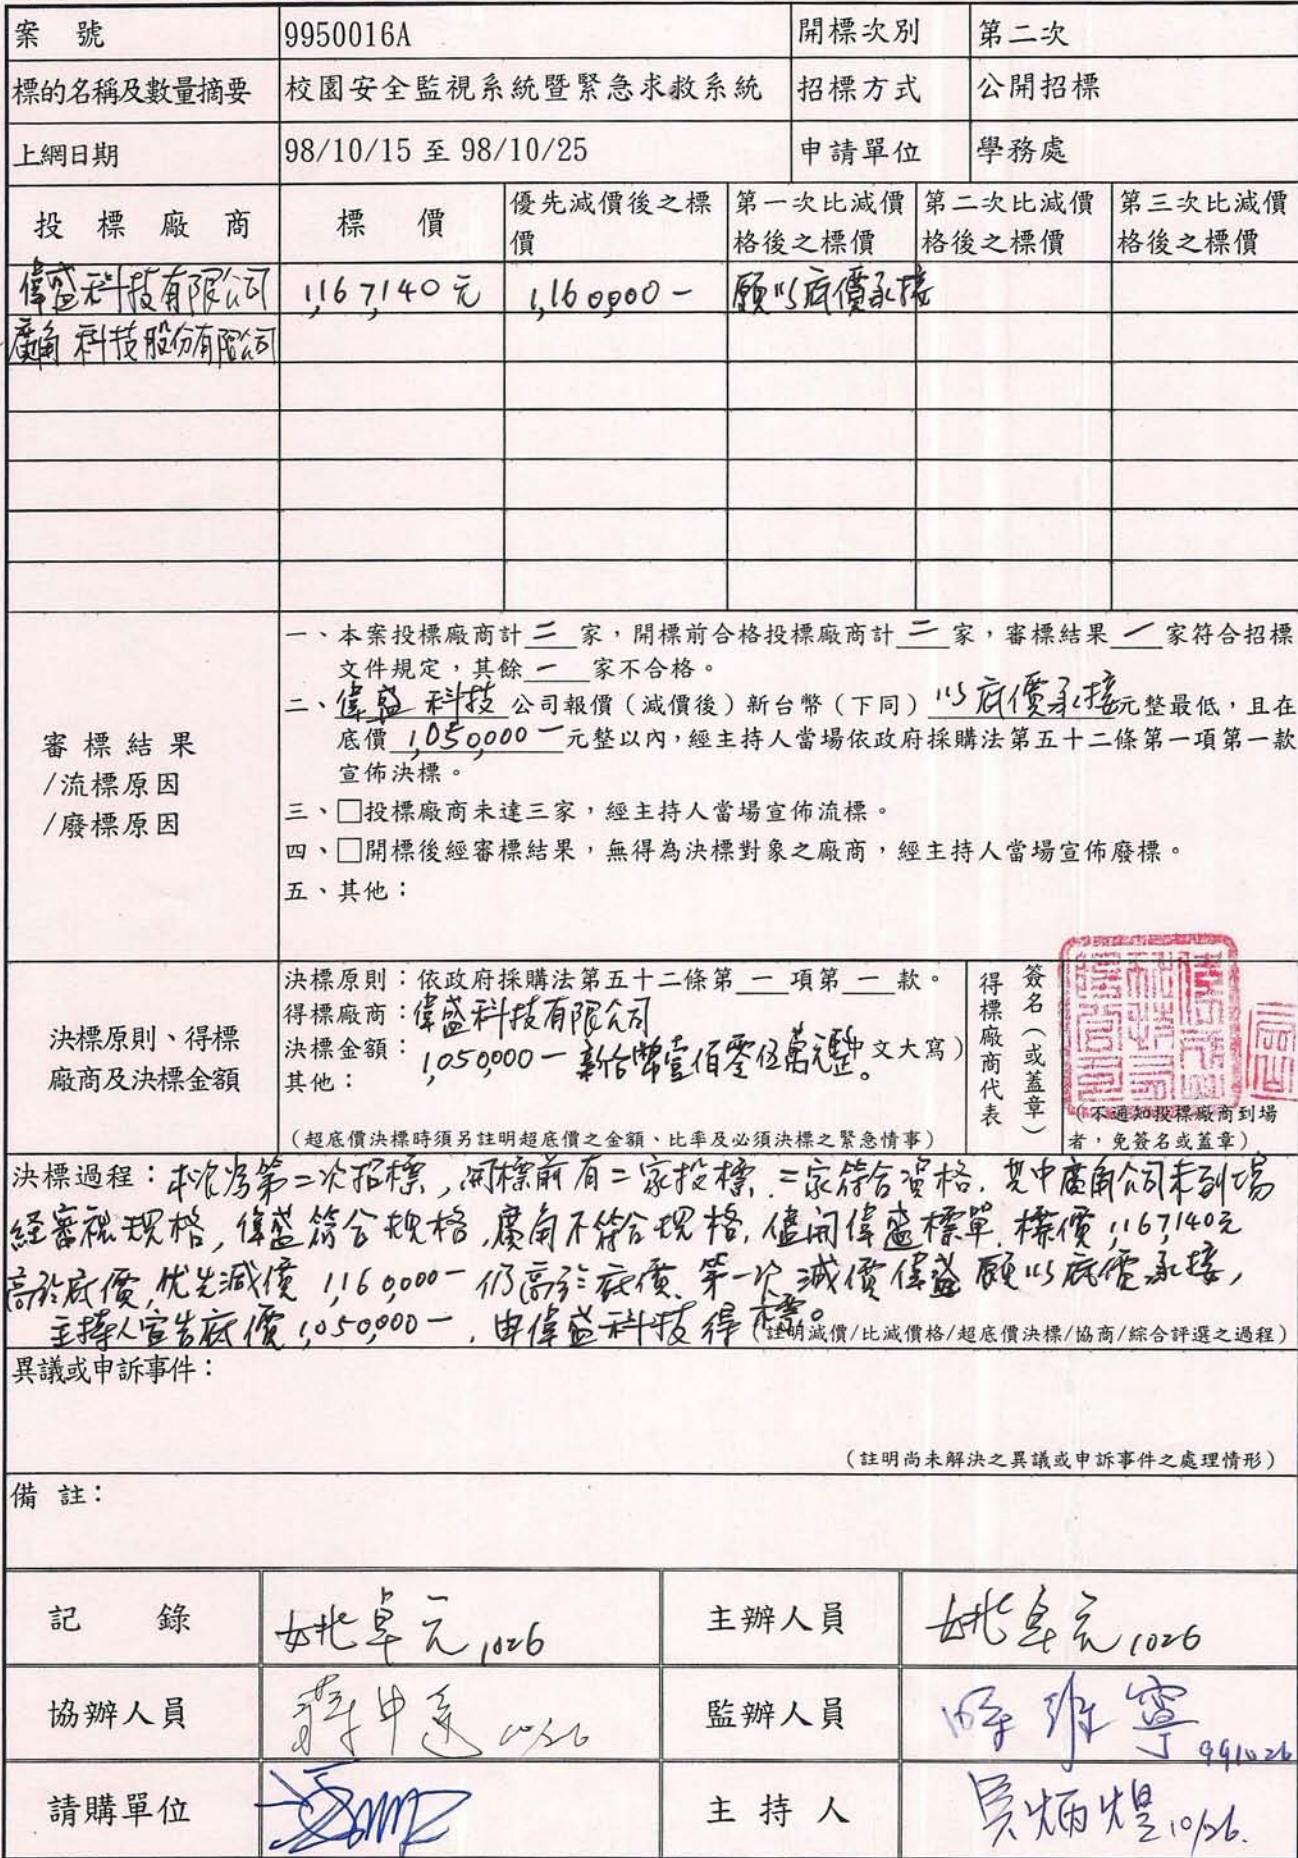 案 號 9950016A 開標次別 第二次
標的名稱及數量摘要 校園安全監視系統暨緊急求救系統 招標方式 公開招標
上網日期 98/10/15 至 98/10/25 申請單位 學務處
投標廠商 標價 優先減價後之標價 第一次比減價格後之標價 第二次比減價格後之標價 第三次比減價格後之標價
偉盛科技有限公司 1,167,140元 1,160,000- 願以底價承接
廣角科技股份有限公司
審標結果
/流標原因
/廢標原因
一、本案投標廠商計 二 家,開標前合格投標廠商計 二 家,審標結果 一 家符合招標
文件規定,其餘 一 家不合格。
二、偉盛科技 公司報價(減價後)新台幣(下同) 以底價承接元整最低,且在
底價 1,050,000- 元整以內,經主持人當場依政府採購法第五十二條第一項第一款
宣佈決標。
三、□投標廠商未達三家,經主持人當場宣佈流標。
四、□開標後經審標結果,無得為決標對象之廠商,經主持人當場宣佈廢標。
五、其他:
決標原則、得標
廠商及決標金額
決標原則:依政府採購法第五十二條第 一 項第 一 款。
得標廠商:偉盛科技有限公司
決標金額:1,050,000- 新台幣壹佰零伍萬元整。中文大寫)
其他:
(超底價決標時須另註明超底價之金額、比率及必須決標之緊急情事)
得標廠商代表
簽名(或蓋章)
(不通知投標廠商到場
者,免簽名或蓋章)
決標過程:本次為第二次招標,開標前有二家投標,二家符合資格,其中廣角公司未到場
經審視規格,偉盛符合規格,廣角不符合規格,僅開偉盛標單,標價1,167,140元
高於底價,优先減價 1,160,000- 仍高於底價,第一次減價偉盛願以底價承接,
主持人宣告底價1,050,000-,由偉盛科技得標。
(註明減價/比減價格/超底價決標/協商/綜合評選之過程)
異議或申訴事件:
(註明尚未解決之異議或申訴事件之處理情形)
備 註:
記 錄 姚卓元 1026 主辦人員 姚卓元 1026
協辦人員 10/26 監辦人員 991026
請購單位 主持人 吳炳煌 10/26.